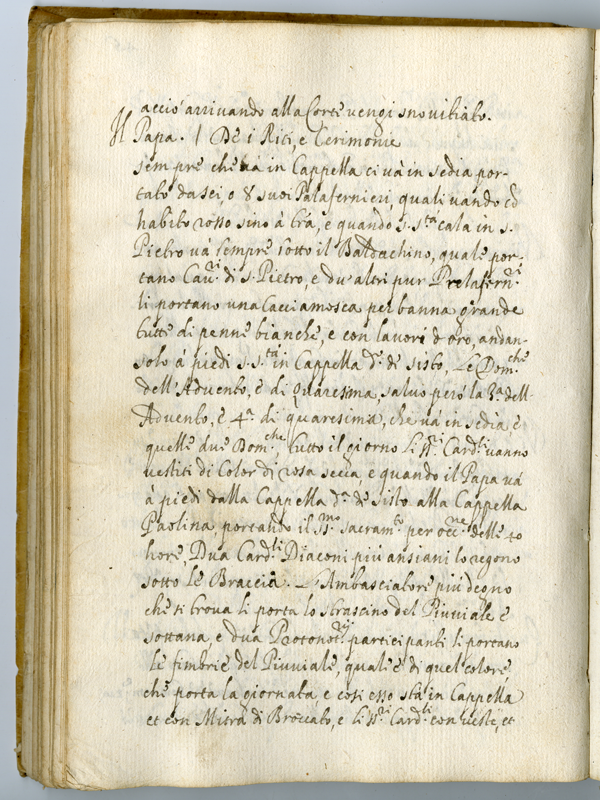 acciò arrivando alla Corte vengi snovitiato.
Il Papa. / De i Riti, e Cerimonie
sempre che và in Cappella ci và in sedia por-
tato da sei, o 8 suoi Palafernieri, quali vando
habito rosso sino à trà, e quando S. S.tà cala in S.
Pietro và sempre sotto il Baldacchino, quale por-
tano Cau.ri di S. Pietro, e du altri pur Prelafern.ri
li portano una Cacciamosca per banna grande
tutte di penne bianche, e con lavori d oro, andan-
solo à piedi S. S.tà in Cappella d.a de Sisto, Le Dom.che
dell'Advento, e di Quaresma, salvo però la 3.a dell
Advento, e 4.a di quaresima, che và in sedia e
quelle due Dom.che, tutto il giorno li SS.ri Card.li vanno
vestiti di Color di rosa secca, e quando il Papa và
à piedi dalla Cappella d.a de Sisto alla Cappella
Paolina, portando il SS.mo Sacram.to per occ.ne delle 40
hore, Dua Card.li Diaconi più ansiani lo regono
sotto le Braccia. L'Ambasciatore più degno
che si trova li porta lo strascino del Piuviale e
sottana, e dua Protonot.rij participanti li portano
le fimbrie del Piuviale, quale è di quel colore,
che porta la giornata, e così esso stà in Cappella
et con Mitra di Broccato, e li SS.ri Card.li con veste, et